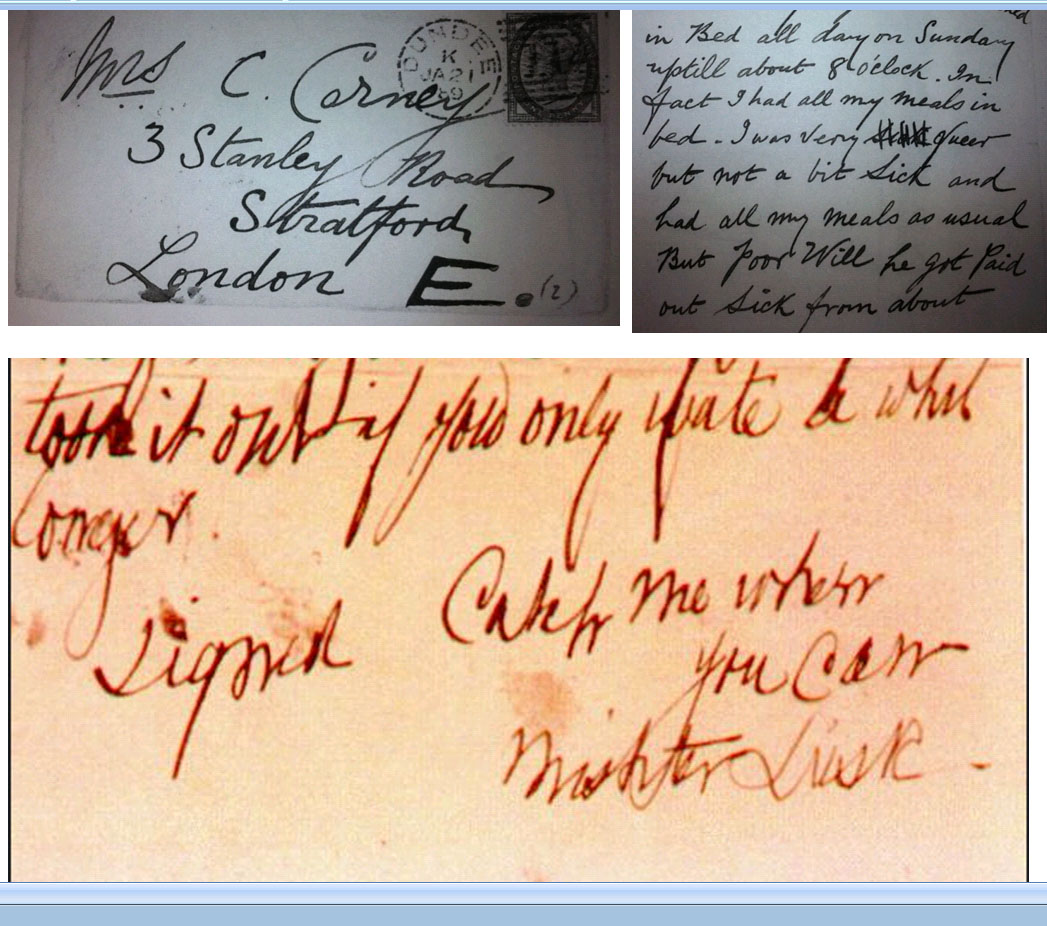 Mrs C. Corney
3 Stanley Road
Stratford
London E. (2)
DUNDEE
K
JA 21
89
in Bed all day on Sunday
uptill about 8 o'clock. In
fact I had all my meals in
bed - I was very queer
but not a bit Sick and
had all my meals as usual
But Poor Will he got Paid
out Sick from about
took it out if you only wate a whil
longer.
Signed
Catch me when
you Can
Mishter Lusk -